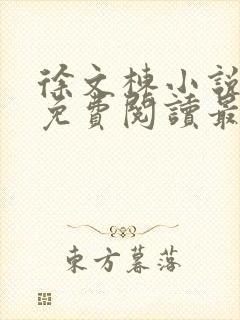 徐文棟小說
免費閱讀最
東方暮落